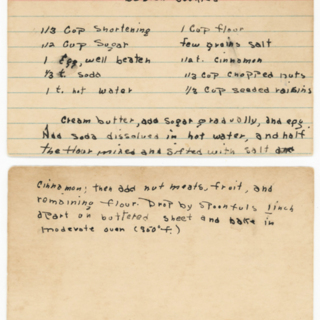 1/3 Cup shortening
1/2 Cup Sugar
1 Egg, well beaten
t. soda
1 t. hot water
1 Cup flour
few grains salt
1/2 t. Cinnamon
1/3 Cup chopped nuts
1/3 Cup seeded raisins
Cream butter, add sugar gradually, and egg
Add soda dissolved in hot water, and half
the flour mixed and sifted with salt and
Cinnamon; then add nut meats, fruit, and
remaining flour. Drop by spoonfuls 1 inch
apart on buttered sheet and bake in
moderate oven (350°f.)